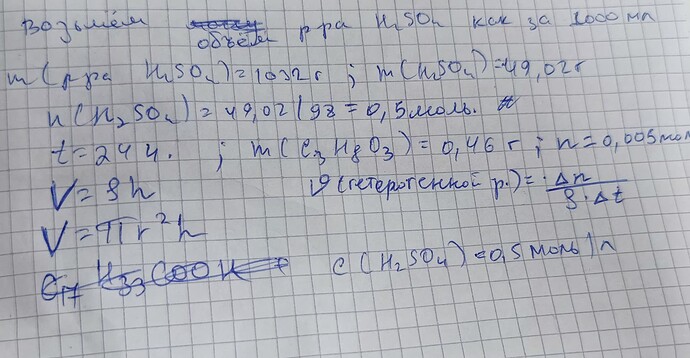 Возьмём объём р-ра H₂SO₄ как за 1000 мл
m(р-ра H₂SO₄) = 1032 г ; m(H₂SO₄) = 49,02 г
n(H₂SO₄) = 49,02/98 = 0,5 моль.
t = 24 ч. ; m(C₃H₈O₃) = 0,46 г ; n = 0,005 мол
V = Sh
ϑ(гетерогенной р.) = Δn / S·Δt
V = πr²h
C₁₇H₃₃COOH
C(H₂SO₄) = 0,5 моль/л